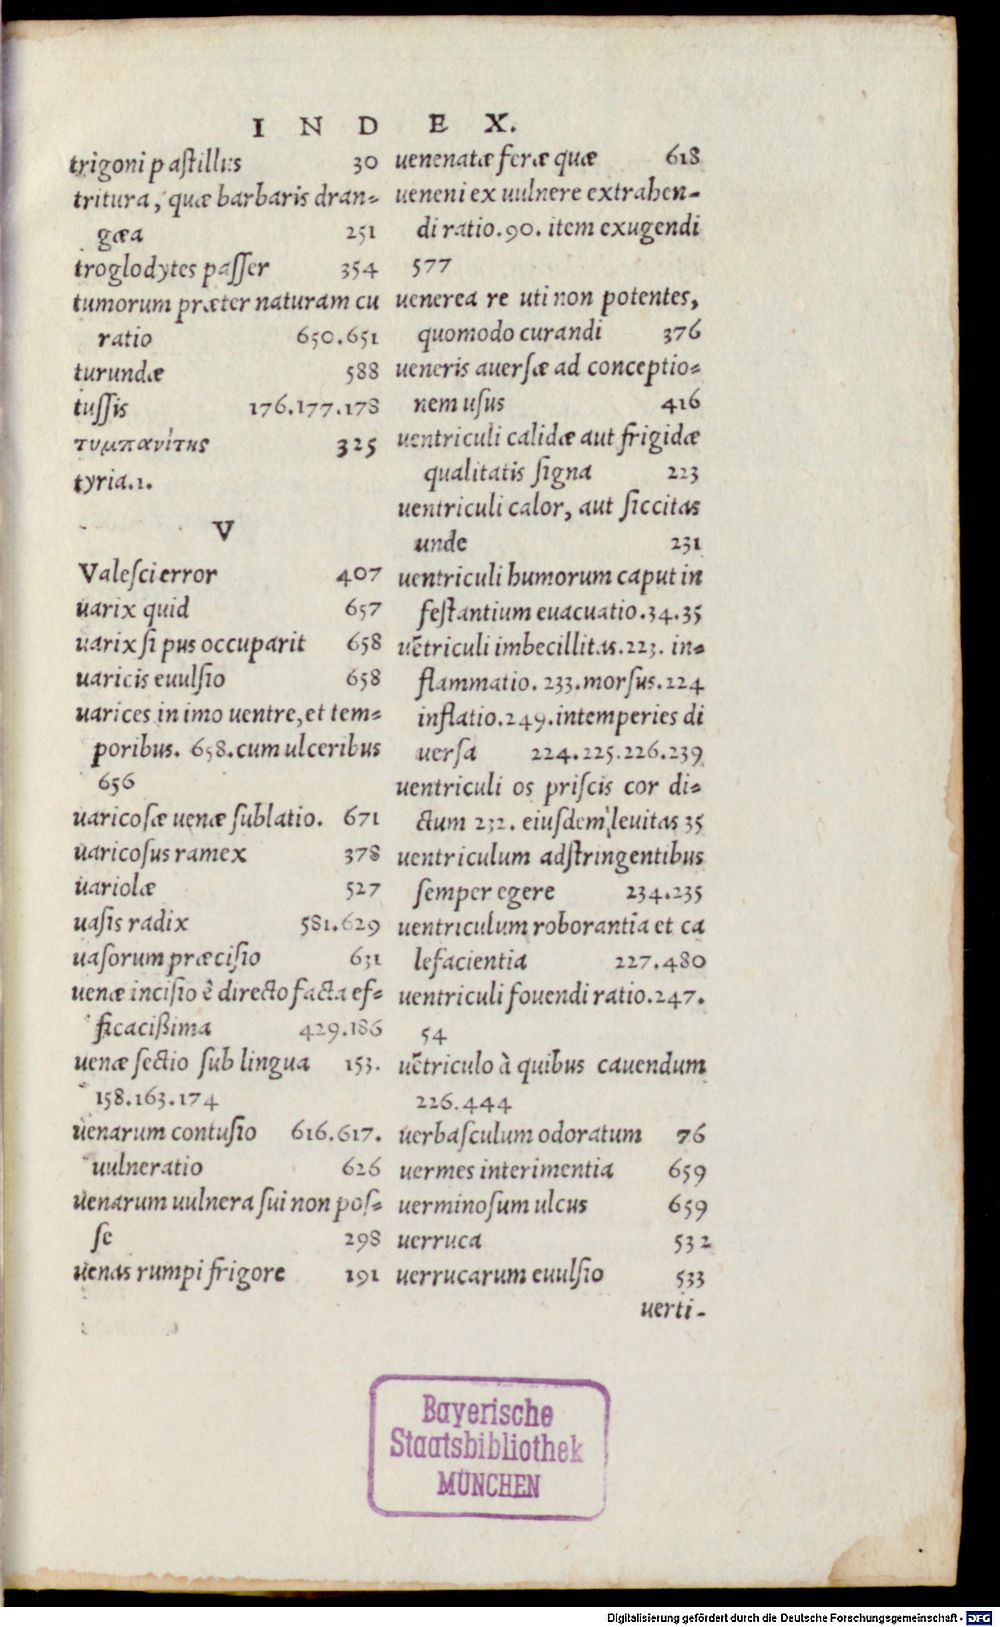 INDEX.
trigoni pastillus 30
tritura, quæ barbaris dran-
gæa 251
troglodytes passer 354
tumorum præter naturam cu
ratio 650.651
turundæ 588
tussis 176.177.178
τυμπανίτης 325
tyria.1.
V
Valesci error 407
uarix quid 657
uarix si pus occuparit 658
uaricis euulsio 658
uarices in imo uentre, et tem-
poribus. 658. cum ulceribus
656
uaricosæ uenæ sublatio. 671
uaricosus ramex 378
uariolæ 527
uasis radix 581.629
uasorum præcisio 631
uenæ incisio è directo facta ef-
ficacißima 429.186
uenæ sectio sub lingua 153.
158.163.174
uenarum contusio 616.617.
uulneratio 626
uenarum uulnera sui non pos-
se 298
uenas rumpi frigore 191
uenenatæ feræ quæ 618
ueneni ex uulnere extrahen-
di ratio.90. item exugendi
577
uenerea re uti non potentes,
quomodo curandi 376
ueneris auersæ ad conceptio-
nem usus 416
uentriculi calidæ aut frigidæ
qualitatis signa 223
uentriculi calor, aut siccitas
unde 231
uentriculi humorum caput in
festantium euacuatio.34.35
uẽtriculi imbecillitas.223. in-
flammatio. 233. morsus. 224
inflatio.249. intemperies di
uersa 224.225.226.239
uentriculi os priscis cor di-
ctum 232. eiusdem leuitas 35
uentriculum adstringentibus
semper egere 234.235
uentriculum roborantia et ca
lefacientia 227.480
uentriculi fouendi ratio.247.
54
uẽtriculo à quibus cauendum
226.444
uerbasculum odoratum 76
uermes interimentia 659
uerminosum ulcus 659
uerruca 532
uerrucarum euulsio 533
uerti-
Bayerische
Staatsbibliothek
MÜNCHEN
Digitalisierung gefördert durch die Deutsche Forschungsgemeinschaft - DFG